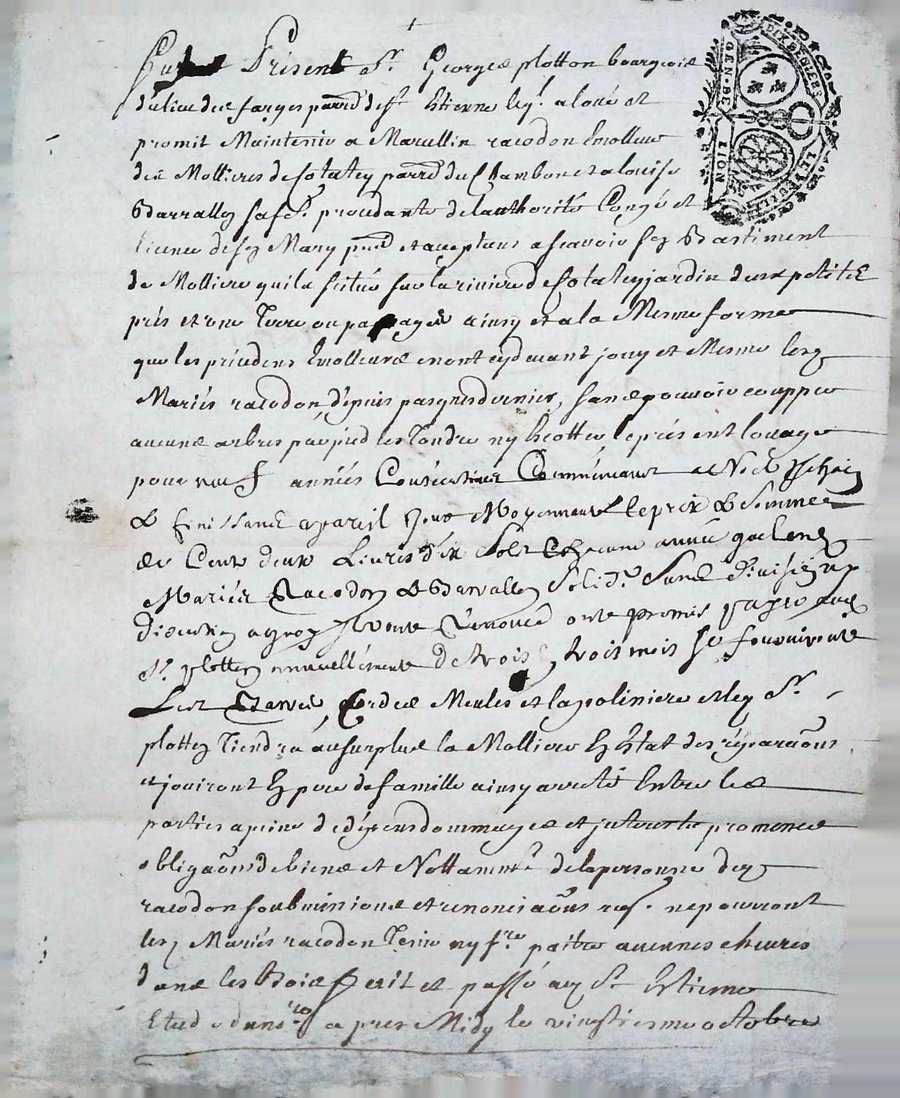 Fut Présent Sr. George plotton bourgeois
du lieu de farges parre de st Etienne leql. a loué et
promit Maintenir a Marcellin racodon Emolleur
des Mollieres de Cotatey parre du Chambon et a louise
Barrallon sa fe. procedante de l'authorité Congé et
licence de son Mary pnt et acceptans a scavoir son Bastiment
de Molliere quil a scitué sur la riviere de Cotatey jardin deux petits
prés et une Terre ou passage ainsy et a la Mesme forme
que les précédens Emolleurs en ont cydevant jouy et Mesme lesq
Mariés racodon depuis pasques dernier, sans pouvoir coupper
aucuns arbres par pied les Tondre ny Ecotter le présent louage
pour neuf années Consécutives Commencant a Noel prochain
& finissant a pareil Jour Moyennant le prix & Somme
de Cent deux Livres dix Solz Chacune année que lesq
Mariés Racodon & Barrallon Solid.t Sans Division ny
Discution a quoy ont Renoncé ont promis payer aud
Sr. plotton annuellement de trois en trois mois se fourniront
Les Cordes Meules et la poliniere et leq Sr.
plotton Tiendra au surplus la Molliere En Etat des réparaons
et jouiront En pere de famille ainsy arresté Entre les
parties a peine de dépens dommages et interests promences
obligaons de biens et Nottamt. de la personne dud
racodon soubmissions et renonciaons res. ne pourront
lesq Mariés racodon Tenir ny fre paitre aucunes cheures
dans les Bois Fait et passé au St Etienne
Etude du nre apres Midy le vingtiesme octobre
GEN. DE
DIX DENIERS
LE FEUILLE
LION